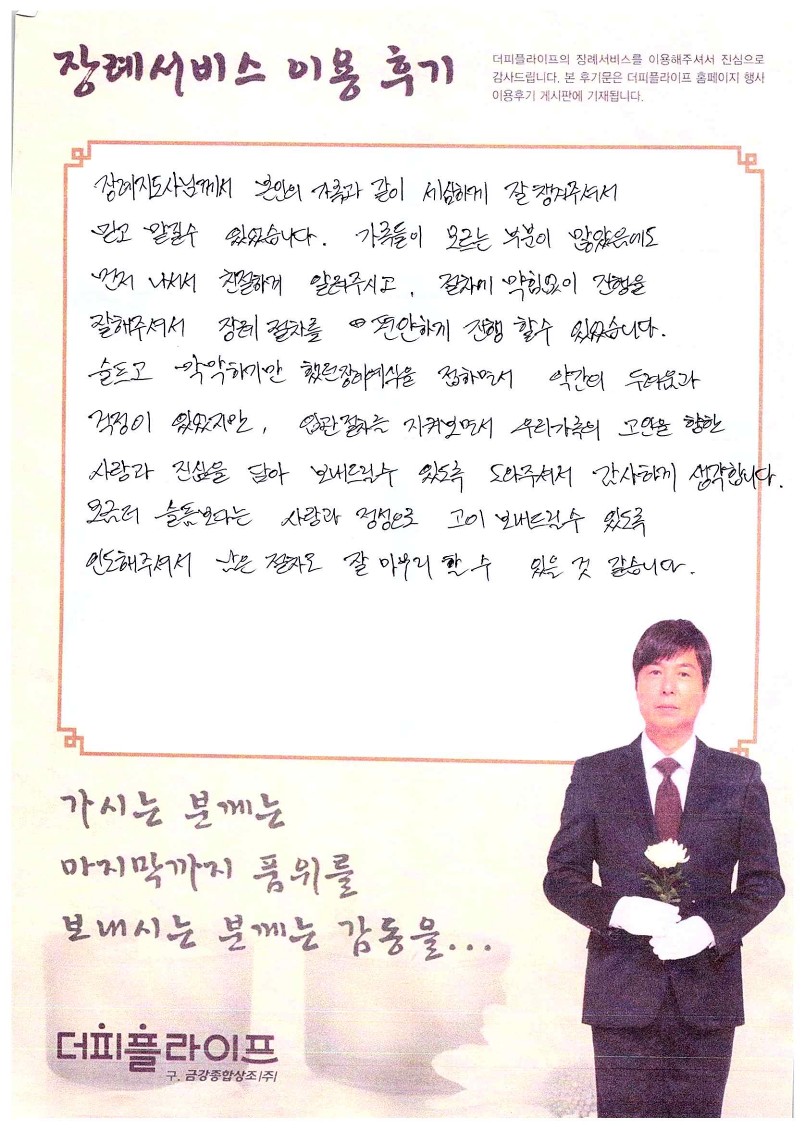 장례서비스 이용 후기
더피플라이프의 장례서비스를 이용해주셔서 진심으로
감사드립니다. 본 후기문은 더피플라이프 홈페이지 행사
이용후기 게시판에 기재됩니다.
장례지도사님께서 본인의 가족과 같이 세심하게 잘 챙겨주셔서
믿고 맡길수 있었습니다. 가족들이 모르는 부분이 많았음에도
먼저 나서서 친절하게 알려주시고, 절차에 막힘없이 진행을
잘해주셔서 장례 절차를 편안하게 진행 할수 있었습니다.
슬프고 막막하기만 했던 장례예식을 접하면서 약간의 두려움과
걱정이 있었지만, 입관절차를 지켜보면서 우리가족의 고인을 향한
사랑과 진심을 담아 보내드릴수 있도록 도와주셔서 감사하게 생각합니다.
모쪼록 슬픔보다는 사랑과 정성으로 고이 보내드릴수 있도록
인도해주셔서 남은 절차도 잘 마무리 할 수 있을 것 같습니다.
가시는 분께는
마지막까지 품위를
보내시는 분께는 감동을...
더피플라이프
구. 금강종합상조(주)